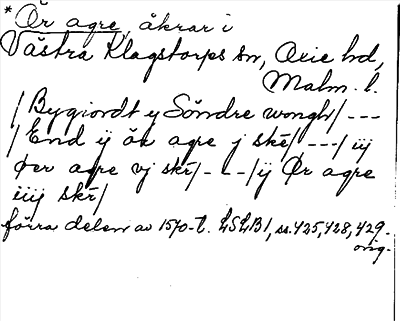 *Ör agre, åkrar i
Västra Klagstorps sn, Oxie hd,
Malm. l.
/Bygiordt y Söndre wongh/ ---
/End ij ör agre j skē/ ---/ iij
Øer agre vj skr̄/ ---/ij Ør agre
iiij skr̄/
förra delen av 1570-t. LSLB1, ss. 425, 428, 429.
orig.